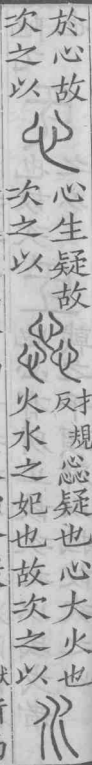 於心故
次之以
心
心生疑故
次之以
惢
才規
反
惢疑也心大火也
火水之妃也故次之以
水